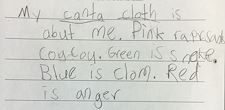 My canta cloth is
abut me. Pink raprsant
Green is
Blue is clom. Red
is anger